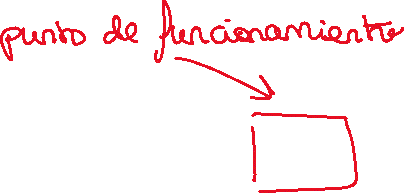 punto de funcionamiento